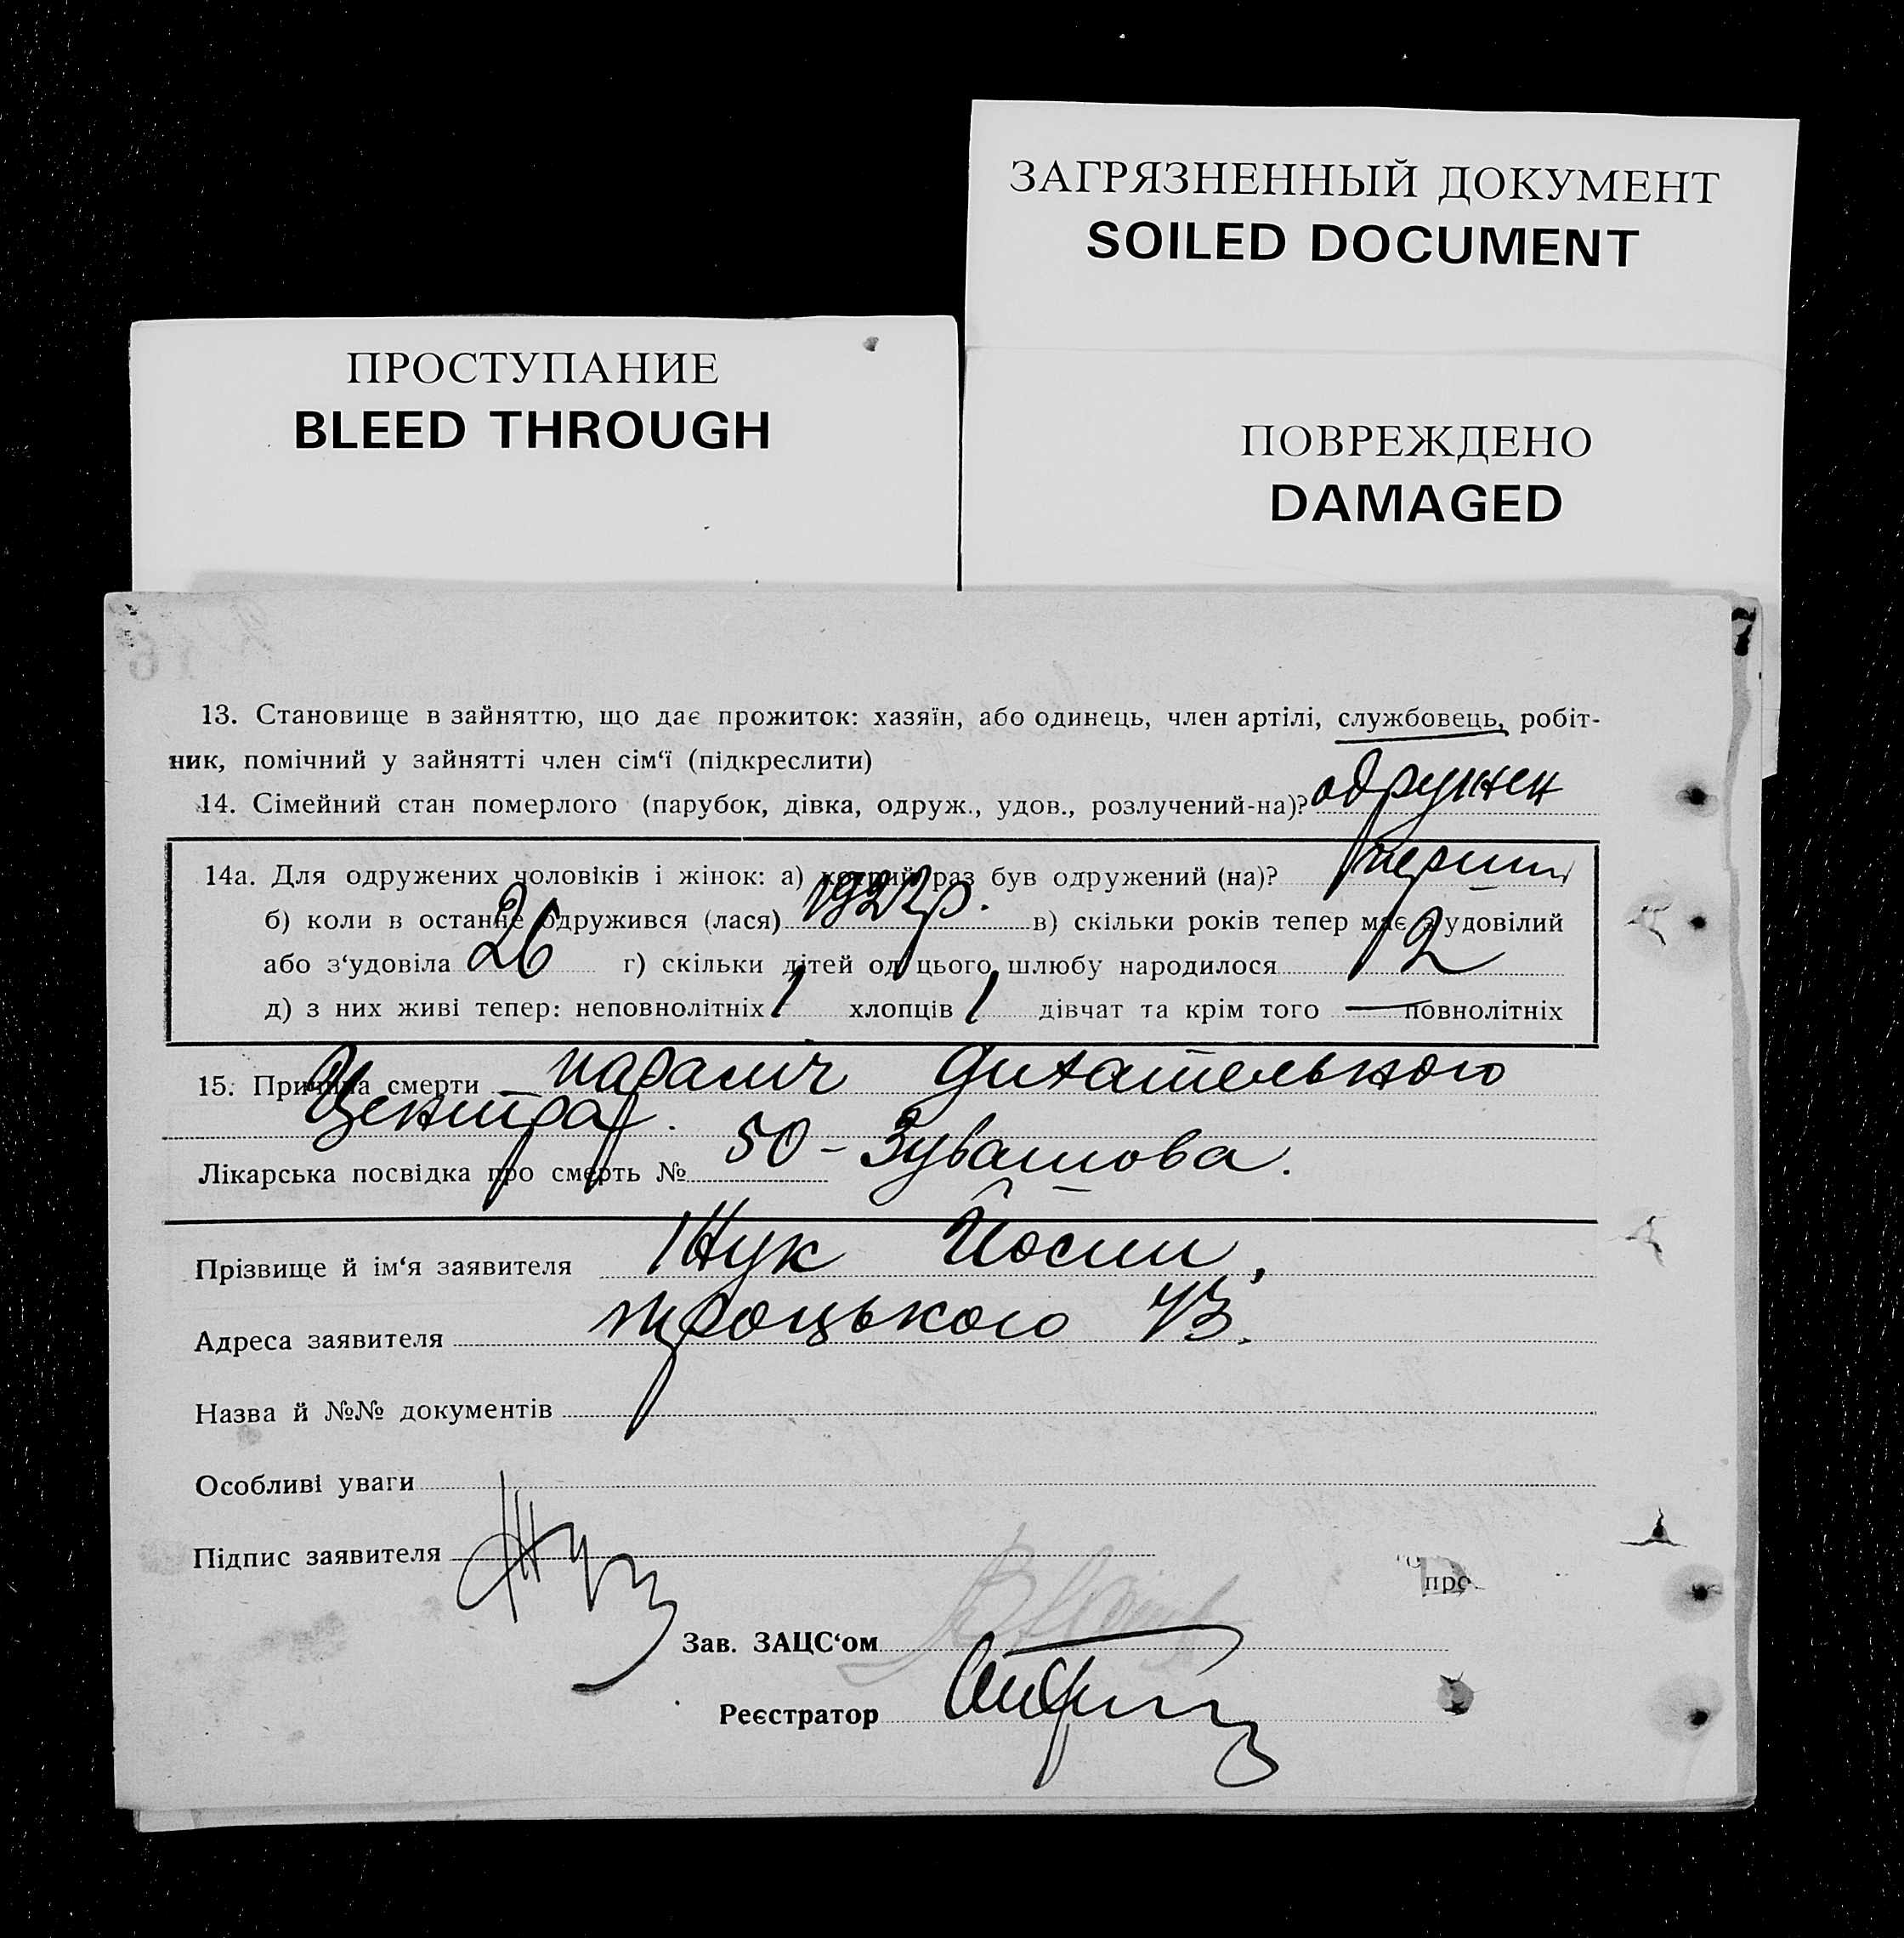 ЗАГРЯЗНЕННЫЙ ДОКУМЕНТ
SOILED DOCUMENT
ПРОСТУПАНИЕ
BLEED THROUGH
ПОВРЕЖДЕНО
DAMAGED
13. Становище в зайняттю, що дає прожиток: хазяїн, або одинець, член артілі, службовець, робіт-
ник, помічний у зайнятті член сім‘ї (підкреслити)
14. Сімейний стан померлого (парубок, дівка, одруж., удов., розлучений-на)? одружен
14а. Для одружених чоловіків і жінок: а) котрий раз був одружений (на)? перший
б) коли в останнє одружився (лася) 1922 р. в) скільки років тепер має з‘удовілий
або з‘удовіла 26 г) скільки дітей од цього шлюбу народилося 2
д) з них живі тепер: неповнолітніх 1 хлопців 1 дівчат та крім того — повнолітніх
15. Причина смерти параліч дихательного
центра.
Лікарська посвідка про смерть № 50 -
Прізвище й ім‘я заявителя Жук Йосип,
Адреса заявителя Троцького 43.
Назва й №№ документів
Особливі уваги
Підпис заявителя
про
Зав. ЗАЦС‘ом
Реєстратор